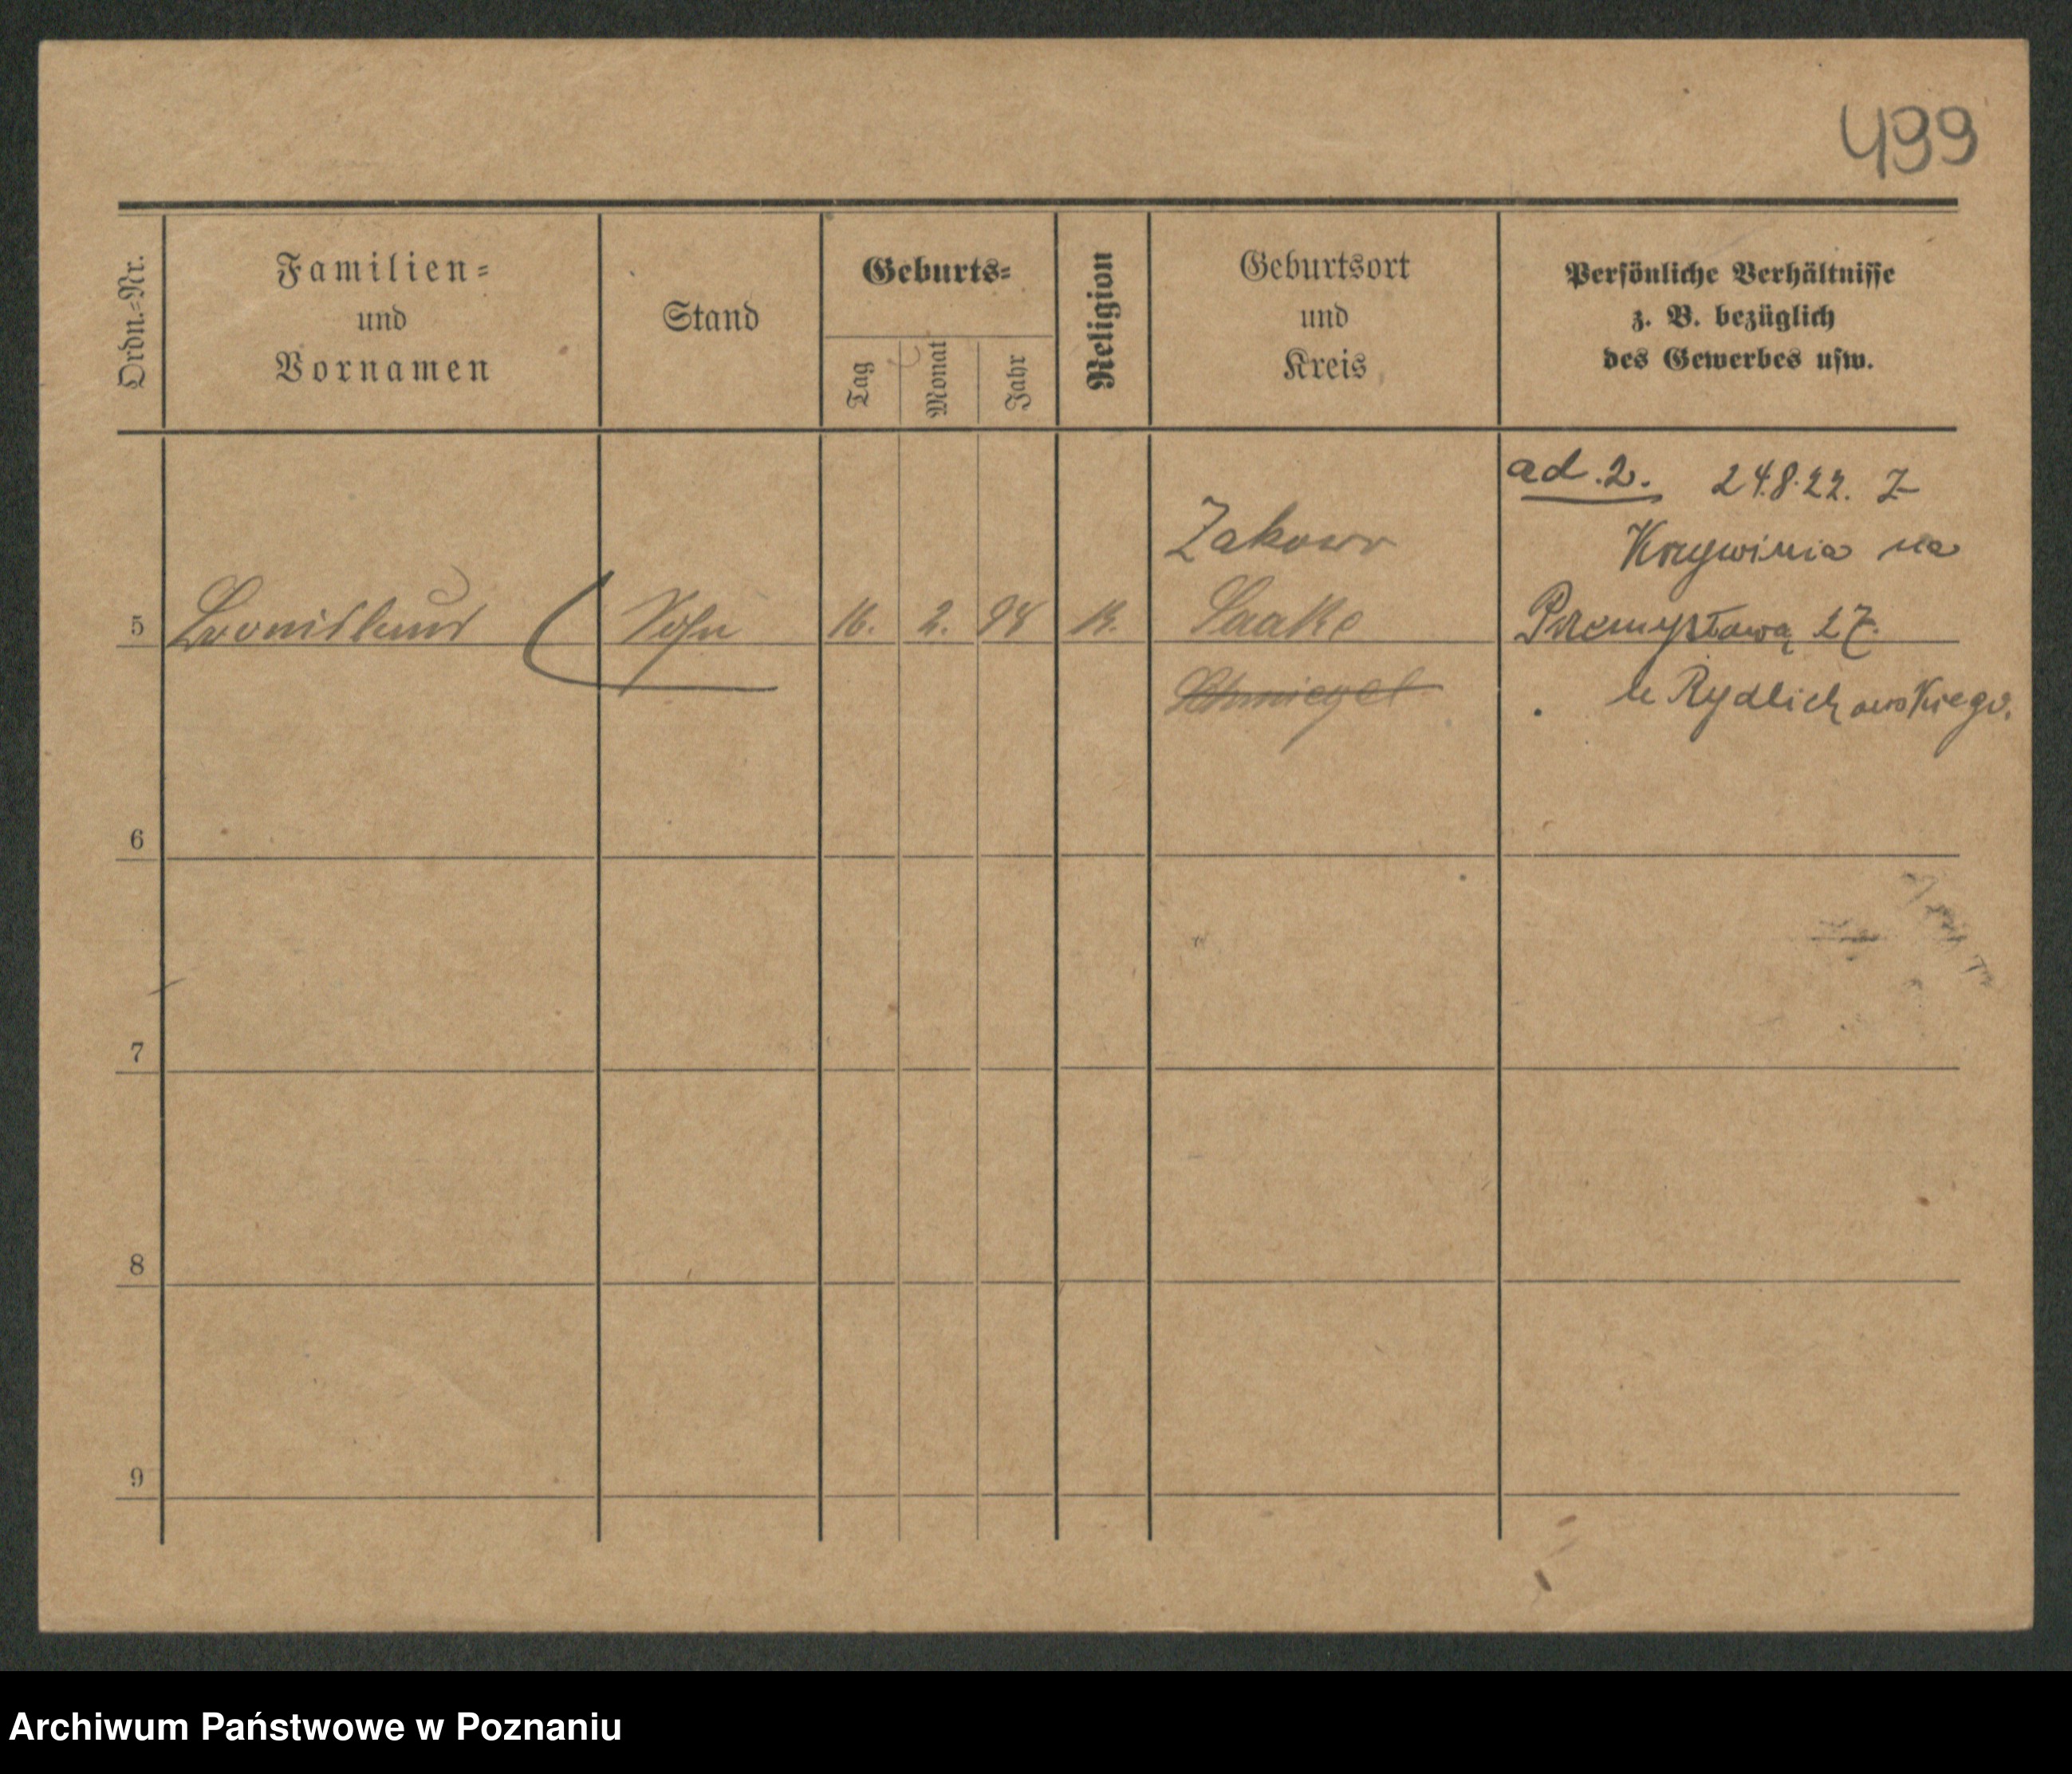 499
Ordn.-Nr.
Familien-
und
Vornamen
Stand
Geburts-
Tag
Monat
Jahr
Religion
Geburtsort
und
Kreis
Persönliche Verhältnisse
z. B. bezüglich
des Gewerbes usw.
ad. 2. 24.8.22. Z
Krzywinia na
Przemysłową 27.
u Rydlichowskiego.
Zakowo
5 Bronislaus Sohn 16. 2. 98 K.
Schmiegel
6
7
8
9
Archiwum Państwowe w Poznaniu